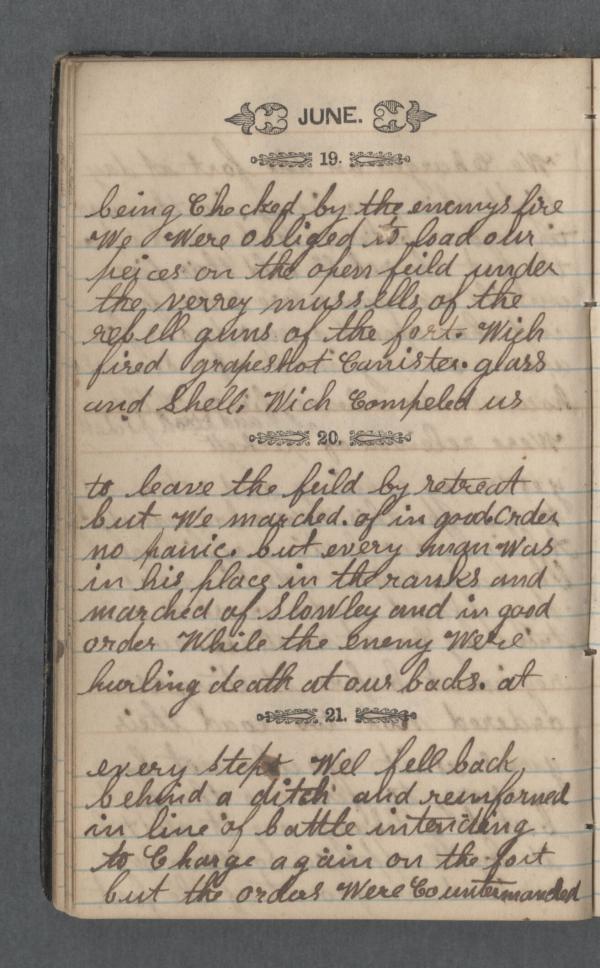 JUNE.
19.
being Checked by the enemys fire
We Were obliged to load our
peices on the open feild under
the verrey mussells of the
rebell guns of the fort. Wich
fired grapeshot Canister. glass
and Shell. Wich Compeled us
20.
to leave the feild by retreat
but We marched. of in good Order
no panic. but every man Was
in his place in the ranks and
marched of Slowley and in good
order While the enemy Were
hurling death at our backs. at
21.
every step We fell back
behind a ditch and reinformed
in line of battle intending
to Charge again on the fort
but the orders Were Countermanded